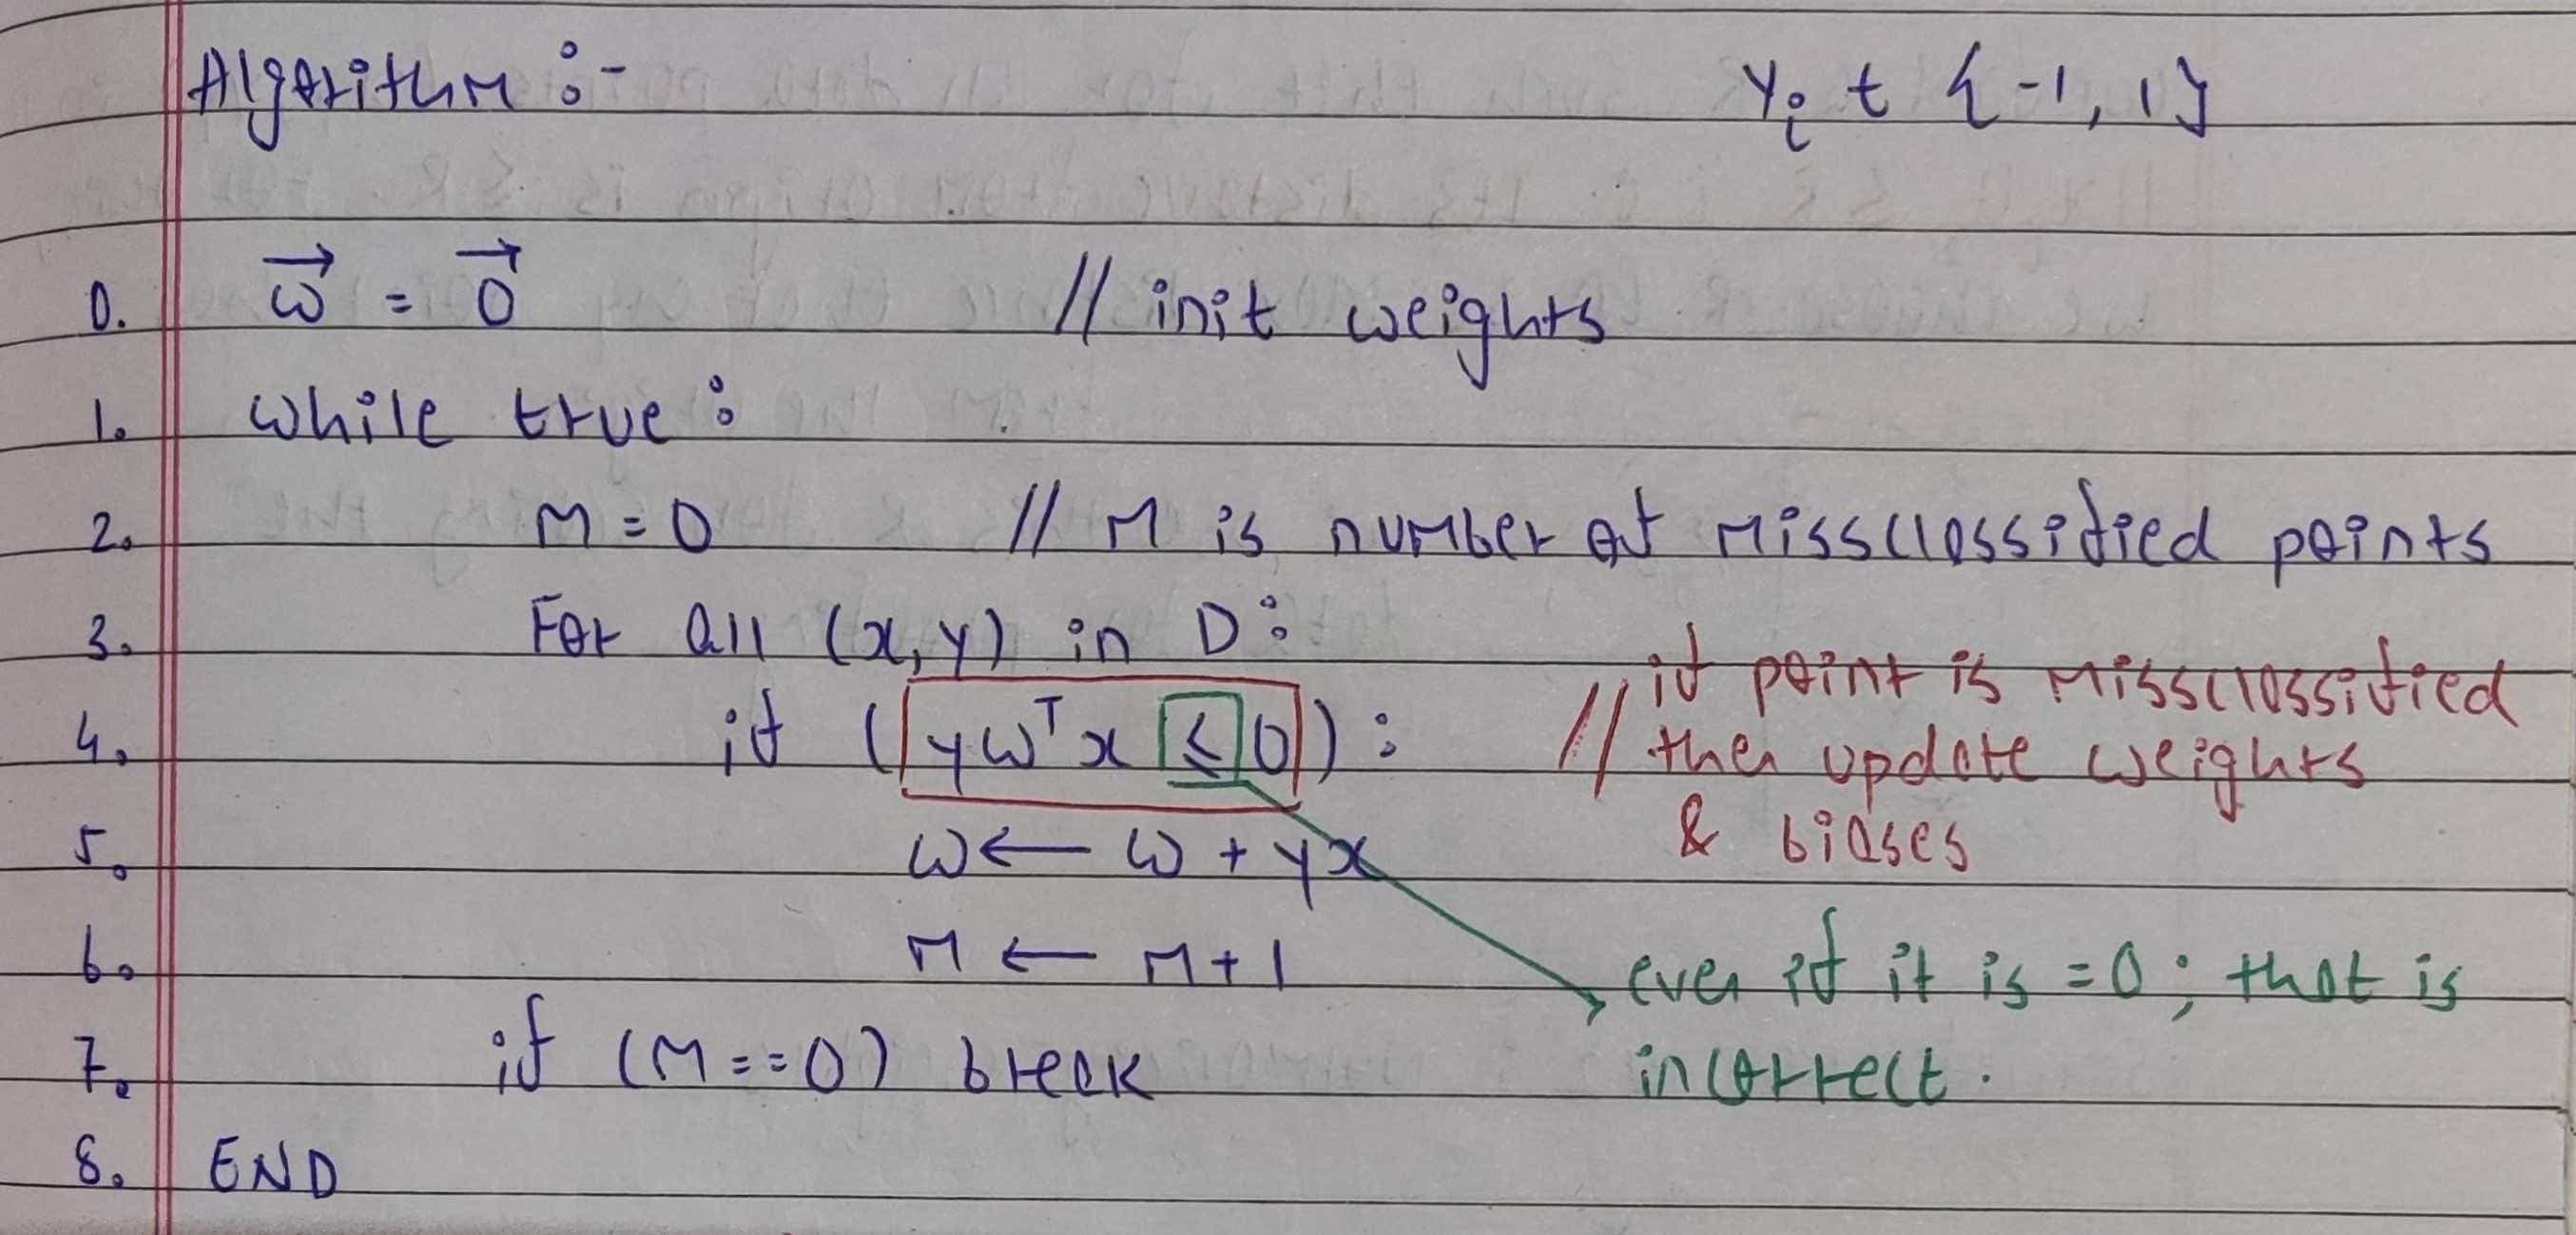 Algorithm :- yᵢ ∈ {-1, 1}
0. w⃗ = 0⃗ // init weights
1. while true :
2. m = 0 // m is number of missclassified points
3. For all (x, y) in D :
4. if (ywᵀx ≤ 0) : // if point is missclassified
then update weights
& biases
5. w ← w + yx
6. m ← m + 1
even if it is = 0 ; that is
incorrect.
7. if (m == 0) break
8. END